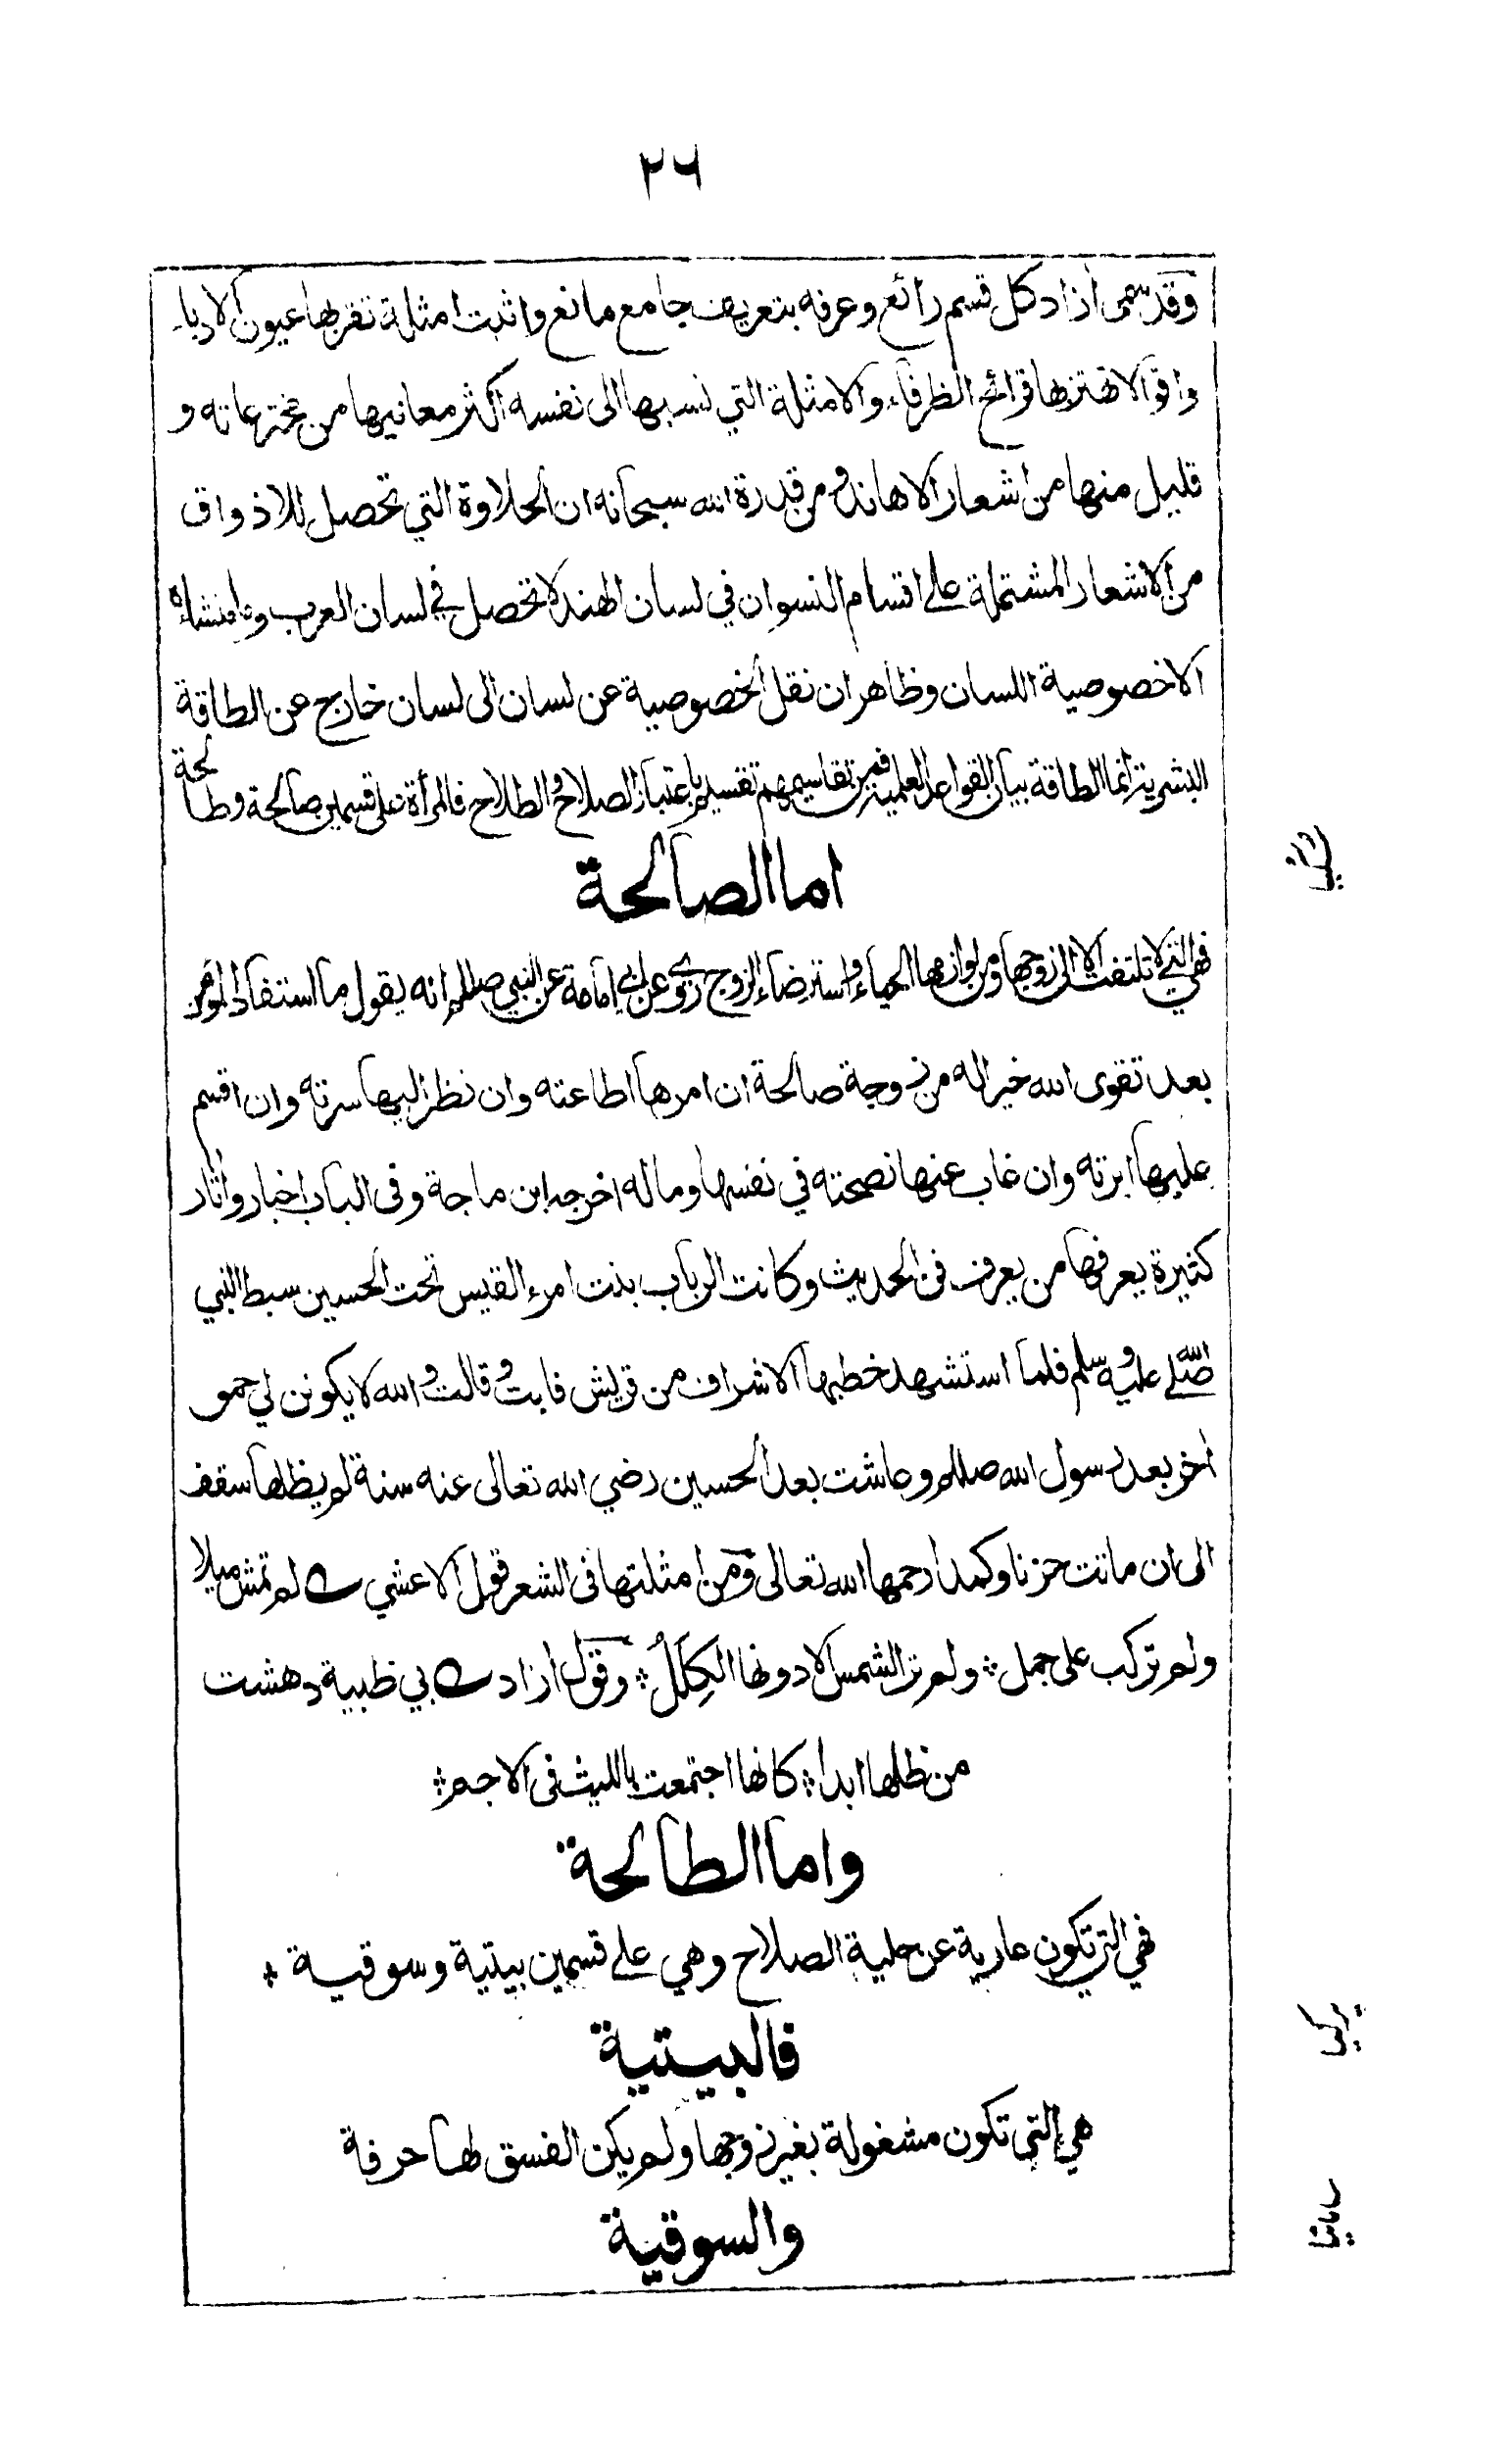 ٢٦
وقد سمى اٰزاد كل قسم رائع وعرفه بتعريف جامع مانع واثبت امثلة تقربها عيون الادباء
واقوالا تهتز بها قرائح الظرفاء والامثلة التي نسبها الى نفسه اكثر معانيها من مخترعاته و
قليل منها من اشعار الاهاند ومن قدرة الله سبحانه ان الحلاوة التي تحصل للاذواق
من الاشعار المشتملة على اقسام النسوان في لسان الهند لا تحصل في لسان العرب وما منشاءه
الا خصوصية اللسان وظاهر ان نقل الخصوصية عن لسان الى لسان خارج عن الطاقة
البشرية انما الطاقة بيان القواعد العلمية فمن تقاسيمهم تقسيم باعتبار الصلاح والطلاح فالمرأة على قسمين صالحة وطالحة
اما الصالحة
فهي التي لا تلتفت الا الى زوجها ومن لوازمها الحياء واسترضاء الزوج روي عن ابي امامة عن النبي صللم انه يقول ما استفاد المؤمن
بعد تقوى الله خيرا له من زوجة صالحة ان امرها اطاعته وان نظر اليها سرته وان اقسم
عليها ابرته وان غاب عنها نصحته في نفسها وماله اخرجه ابن ماجة وفي الباب اخبار واٰثار
كثيرة يعرفها من يعرف فن الحديث وكانت الرباب بنت امرء القيس تحت الحسين سبط النبي
صلى الله عليه وسلم فلما استشهد خطبها الاشراف من قريش فابت وقالت والله لا يكونن لي حمو
اٰخر بعد رسول الله صللم وعاشت بعد الحسين رضي الله تعالى عنه سنة لم يظلها سقف
الى ان ماتت حزنا وكمدا رحمها الله تعالى ومن امثلتها فى الشعر قول الاعشي ؎ لم تمش ميلا
ولم تركب على جمل ؛ ولم تر الشمس الا دونها الكِلَلُ ؛ وقول اٰزاد ؎ بي ظبية دهشت
من ظلها ابدا ؛ كانها اجتمعت بالليث فى الاجم ؛
واما الطالحة
فهي التي تكون عارية عن حلية الصلاح وهي على قسمين بيتية وسوقية +
پركيا
فالبيتية
هي التي تكون مشغولة بغير زوجها ولم يكن الفسق لها حرفة
والسوقية